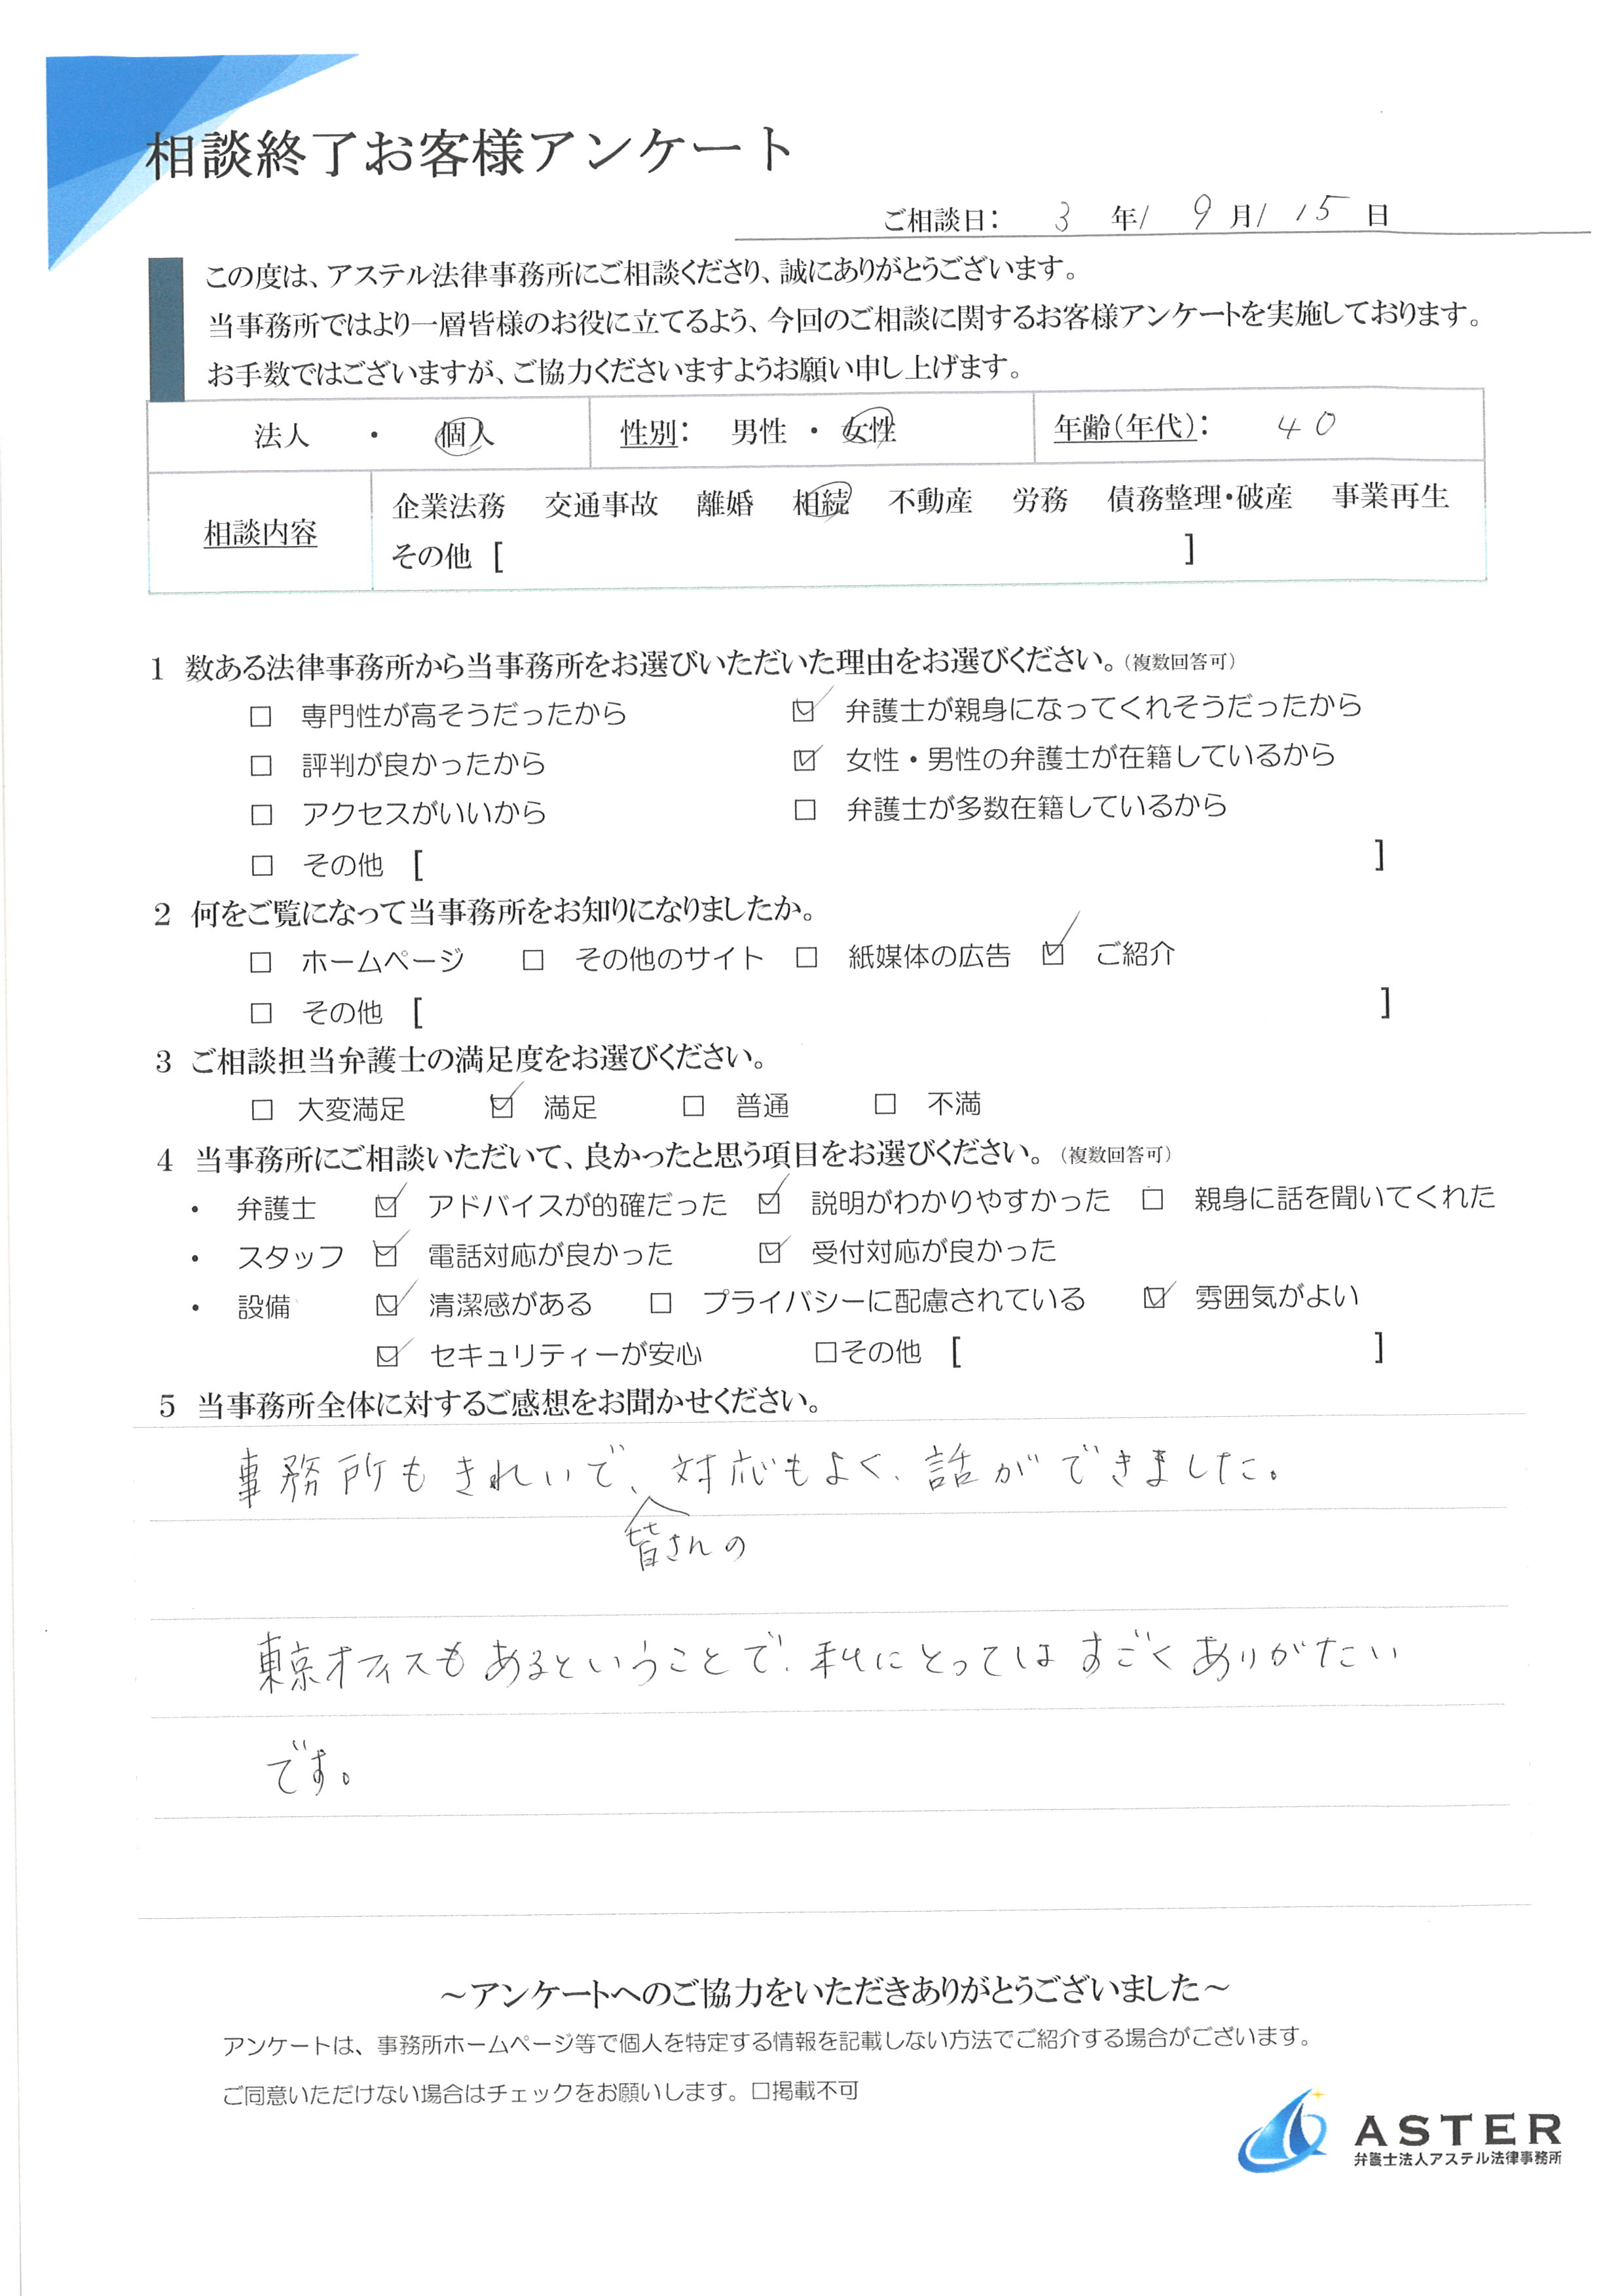 相談終了お客様アンケート
ご相談日： 3 年/ 9 月/ 15 日
この度は、アステル法律事務所にご相談くださり、誠にありがとうございます。
当事務所ではより一層皆様のお役に立てるよう、今回のご相談に関するお客様アンケートを実施しております。
お手数ではございますが、ご協力くださいますようお願い申し上げます。
法人 ・ 個人 性別： 男性 ・ 女性 年齢（年代）： 40
相談内容 企業法務 交通事故 離婚 相続 不動産 労務 債務整理・破産 事業再生
その他 [ ]
1 数ある法律事務所から当事務所をお選びいただいた理由をお選びください。（複数回答可）
□ 専門性が高そうだったから ☑ 弁護士が親身になってくれそうだったから
□ 評判が良かったから ☑ 女性・男性の弁護士が在籍しているから
□ アクセスがいいから □ 弁護士が多数在籍しているから
□ その他 [ ]
2 何をご覧になって当事務所をお知りになりましたか。
□ ホームページ □ その他のサイト □ 紙媒体の広告 ☑ ご紹介
□ その他 [ ]
3 ご相談担当弁護士の満足度をお選びください。
□ 大変満足 ☑ 満足 □ 普通 □ 不満
4 当事務所にご相談いただいて、良かったと思う項目をお選びください。（複数回答可）
・ 弁護士 ☑ アドバイスが的確だった ☑ 説明がわかりやすかった □ 親身に話を聞いてくれた
・ スタッフ ☑ 電話対応が良かった ☑ 受付対応が良かった
・ 設備 ☑ 清潔感がある □ プライバシーに配慮されている ☑ 雰囲気がよい
☑ セキュリティーが安心 □その他 [ ]
5 当事務所全体に対するご感想をお聞かせください。
事務所もきれいで、対応もよく、話ができました。
皆さんの
東京オフィスもあるということで、私にとってはすごくありがたい
です。
～アンケートへのご協力をいただきありがとうございました～
アンケートは、事務所ホームページ等で個人を特定する情報を記載しない方法でご紹介する場合がございます。
ご同意いただけない場合はチェックをお願いします。□掲載不可
ASTER
弁護士法人アステル法律事務所